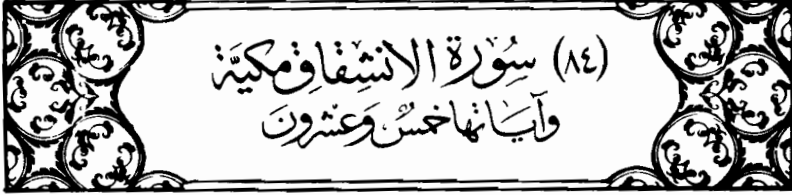 (٨٤) سُورَة الانشِقاقِ مَكيَّة
وَآيَاتها خمسٌ وَعشرونَ